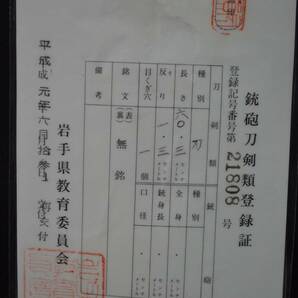 銃砲刀剣類登録証
登録記号番号第21808号
刀剣類
銃砲
種別
刀
種別
長さ
六〇・三
センチメートル
全長
センチメートル
反り
一・三
センチメートル
銃身長
センチメートル
目くぎ穴
一個
口径
銘文
(表)
無銘
(裏)
備考
平成元年六月拾参日
交付
岩手県教育委員会